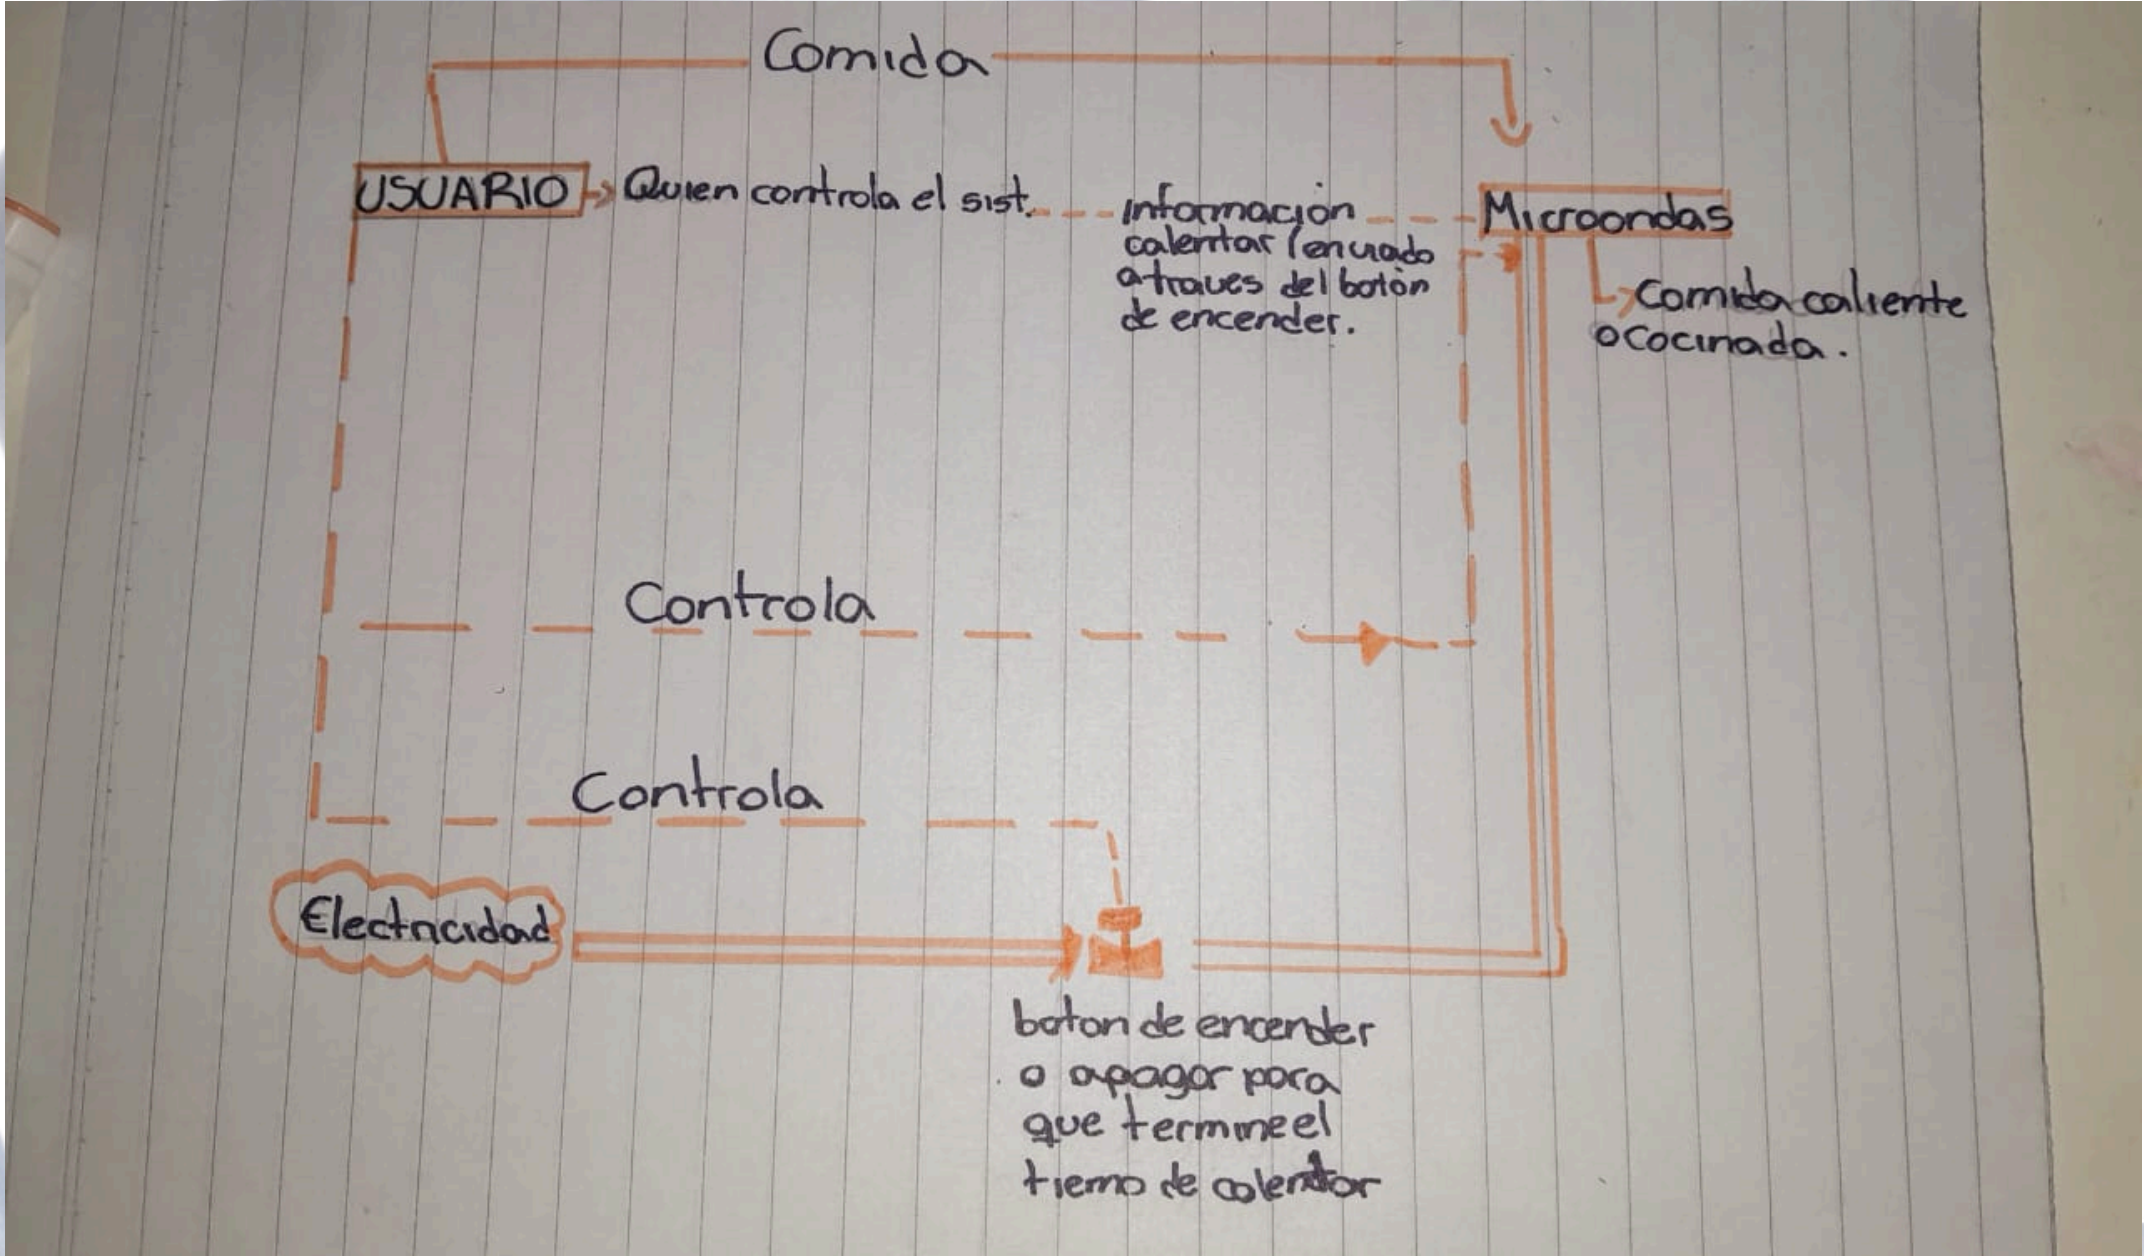 Comida
USUARIO
Quien controla el sist.
información
calentar (enviado
a traves del botón
de encender.
Microondas
Comida caliente
o cocinada.
Controla
Controla
Electricidad
boton de encender
o apagar para
que termine el
tiemo de calentar